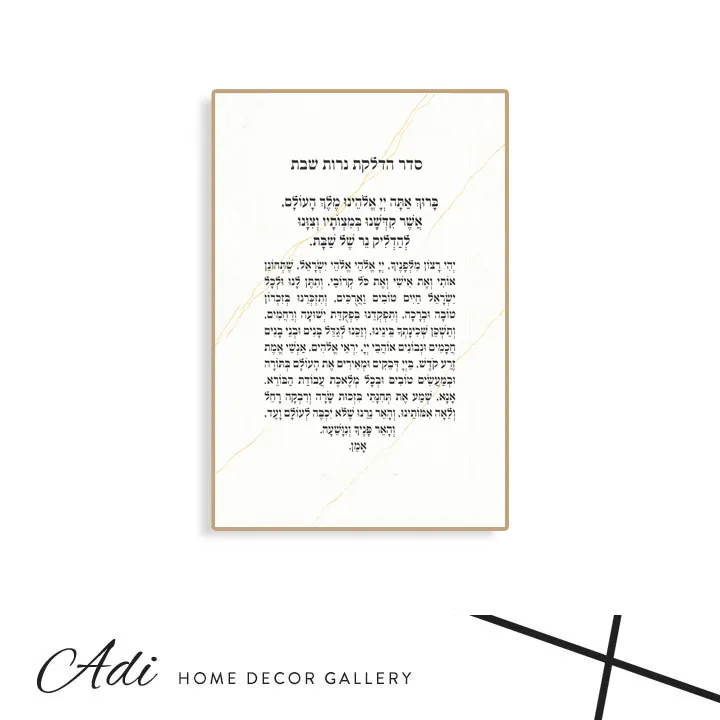 סדר הדלקת נרות שבת
בָּרוּךְ אַתָּה יְיָ אֱלֹהֵינוּ מֶלֶךְ הָעוֹלָם,
אֲשֶׁר קִדְּשָׁנוּ בְּמִצְוֹתָיו וְצִוָּנוּ
לְהַדְלִיק נֵר שֶׁל שַׁבָּת.
יְהִי רָצוֹן מִלְּפָנֶיךָ, יְיָ אֱלֹהַי אֱלֹהֵי יִשְׂרָאֵל, שֶׁתְּחוֹנֵן
אוֹתִי וְאֶת אִישִׁי וְאֶת כֹּל קְרוֹבַי, וְתִתֵּן לָנוּ וּלְכָל
יִשְׂרָאֵל חַיִּים טוֹבִים וַאֲרֻכִּים, וְתִזְכְּרֵנוּ בְּזִכְרוֹן
טוֹבָה וּבְרָכָה, וְתִפְקְדֵנוּ בִּפְקֻדַּת יְשׁוּעָה וְרַחֲמִים,
וְתַשְׁכֵּן שְׁכִינָתְךָ בֵּינֵינוּ, וְזַכֵּנוּ לְגַדֵּל בָּנִים וּבְנֵי בָנִים
חֲכָמִים וּנְבוֹנִים אוֹהֲבֵי יְיָ, יִרְאֵי אֱלֹהִים, אַנְשֵׁי אֱמֶת
זֶרַע קֹדֶשׁ, בַּיְיָ דְּבֵקִים וּמְאִירִים אֶת הָעוֹלָם בְּתוֹרָה
וּבְמַעֲשִׂים טוֹבִים וּבְכָל מְלֶאכֶת עֲבוֹדַת הַבּוֹרֵא.
אָנָּא, שְׁמַע אֶת תְּחִנָּתִי בִּזְכוּת שָׂרָה וְרִבְקָה רָחֵל
וְלֵאָה אִמּוֹתֵינוּ, וְהָאֵר נֵרֵנוּ שֶׁלֹּא יִכְבֶּה לְעוֹלָם וָעֶד,
וְהָאֵר פָּנֶיךָ וְנִוָּשֵׁעָה.
אָמֵן.
Adi HOME DECOR GALLERY